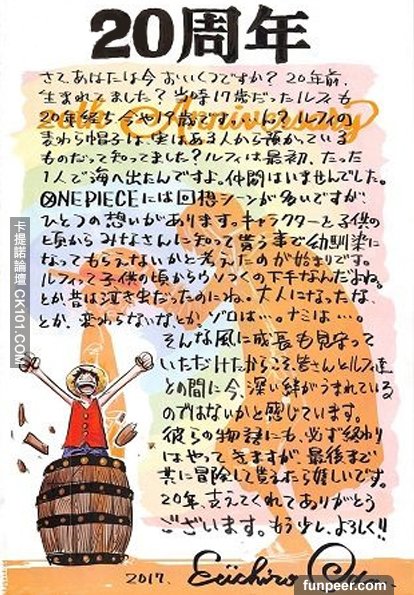 20周年
20th Anniversary
さて、あなたは今おいくつですか? 20年前、
生まれてました? 当時17歳だったルフィも
20年経ち今や19歳ですって。ん? ルフィの
麦わら帽子は、実はある人から預かっている
ものだって知ってました? ルフィは最初、たった
1人で海へ出たんですよ、仲間はいませんでした。
ONE PIECEには回想シーンが多いですが、
ひとつの想いがあります。キャラクターと子供の
頃からみなさんに知って貰う事で幼馴染に
なってもらえないかと考えたのが始まりです。
ルフィって子供の頃からウソつくの下手なんだよね。
とか、昔は泣き虫だったのにね。大人になったな、
とか、変わらないな、とか。ゾロは…。ナミは…。
そんな風に成長も見守って
いただけたからこそ、皆さんとルフィ達
との間に今、深い絆がうまれている
のではないかと感じています。
彼らの物語にも、必ず終わり
はやってきますが、最後まで
共に冒険して貰えたら嬉しいです。
20年、支えてくれてありがとう
ございます。もう少し、よろしく!!
2017、 Eiichiro Oda
卡提諾論壇 CK101.COM
funpeer.com